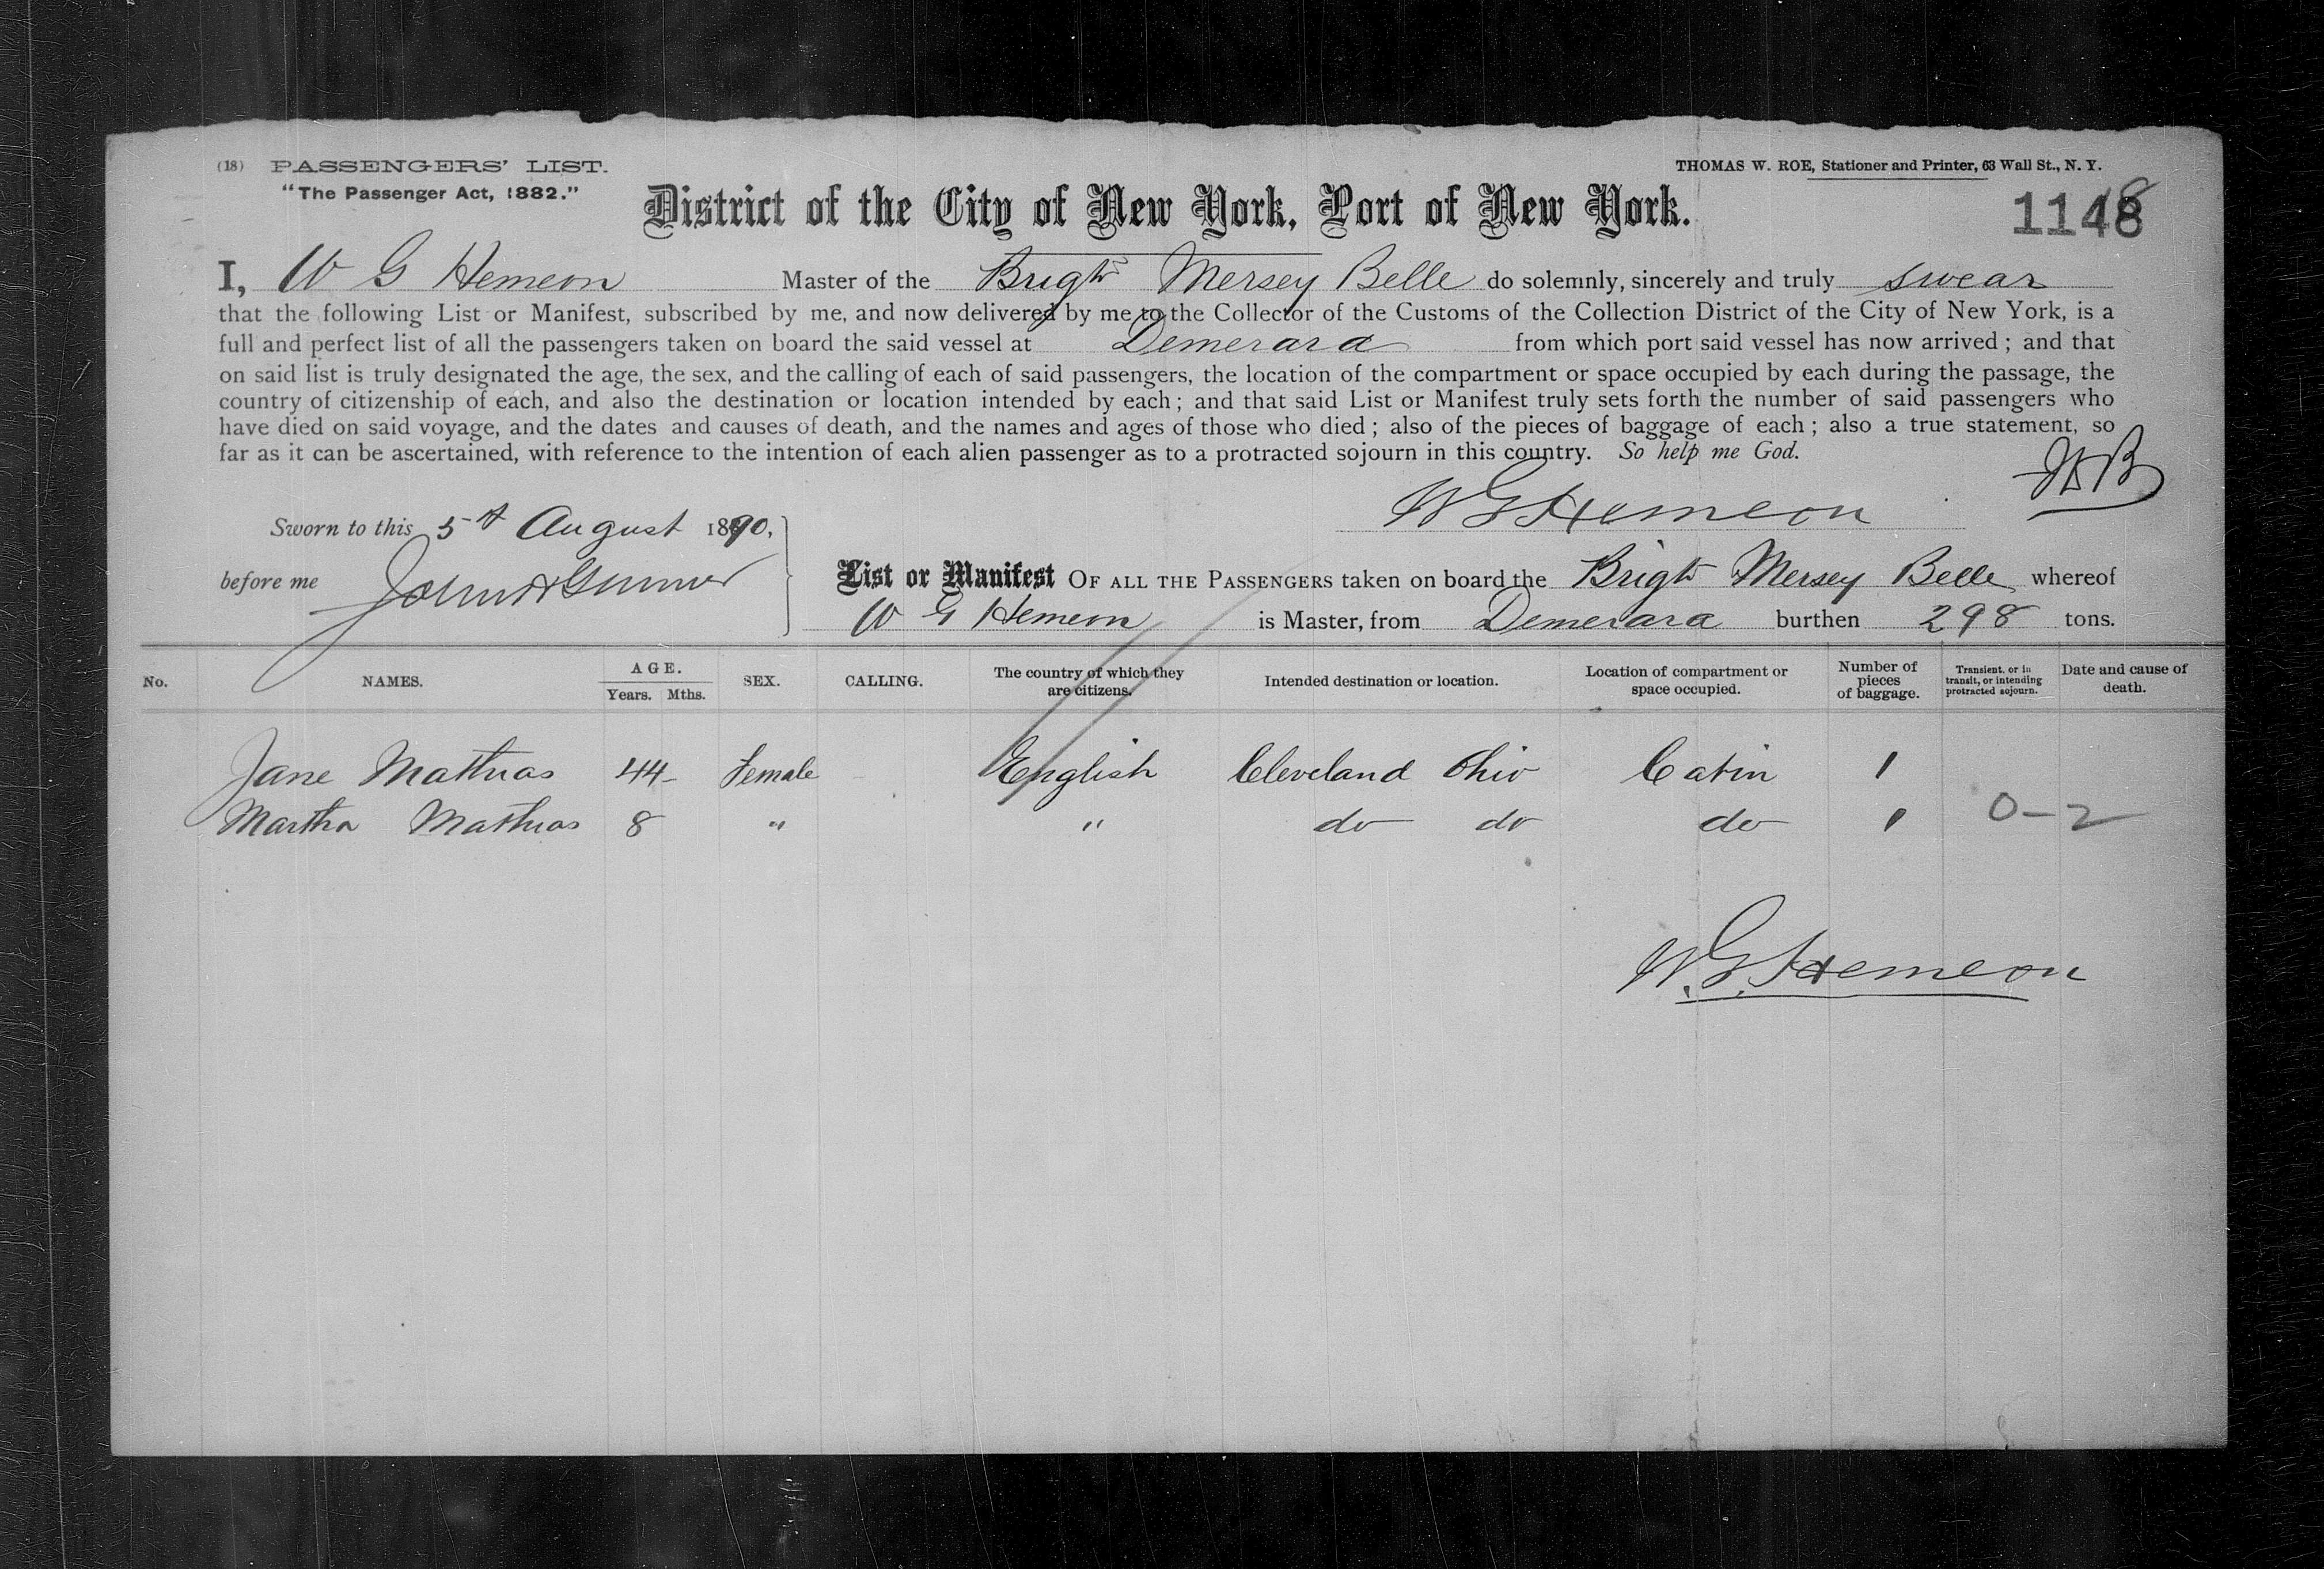 (18) PASSENGERS' LIST.
"The Passenger Act, 1882."
THOMAS W. ROE, Stationer and Printer, 63 Wall St., N. Y.
District of the City of New York, Port of New York.
1148
I, W G Hemeon Master of the Brigt Mersey Belle do solemnly, sincerely and truly swear
that the following List or Manifest, subscribed by me, and now delivered by me to the Collector of the Customs of the Collection District of the City of New York, is a
full and perfect list of all the passengers taken on board the said vessel at Demerara from which port said vessel has now arrived; and that
on said list is truly designated the age, the sex, and the calling of each of said passengers, the location of the compartment or space occupied by each during the passage, the
country of citizenship of each, and also the destination or location intended by each; and that said List or Manifest truly sets forth the number of said passengers who
have died on said voyage, and the dates and causes of death, and the names and ages of those who died; also of the pieces of baggage of each; also a true statement, so
far as it can be ascertained, with reference to the intention of each alien passenger as to a protracted sojourn in this country. So help me God.
W G Hemeon
Sworn to this 5th August 1890,
before me John
List or Manifest OF ALL THE PASSENGERS taken on board the Brigt Mersey Belle whereof
W G Hemeon is Master, from Demerara burthen 298 tons.
No. NAMES. AGE. Years. Mths. SEX. CALLING. The country of which they are citizens. Intended destination or location. Location of compartment or space occupied. Number of pieces of baggage. Transient, or in transit, or intending protracted sojourn. Date and cause of death.
Jane Mathias 44 Female English Cleveland Ohio Cabin 1
Martha Mathias 8 " " do do do 1
0-2
W. G. Hemeon